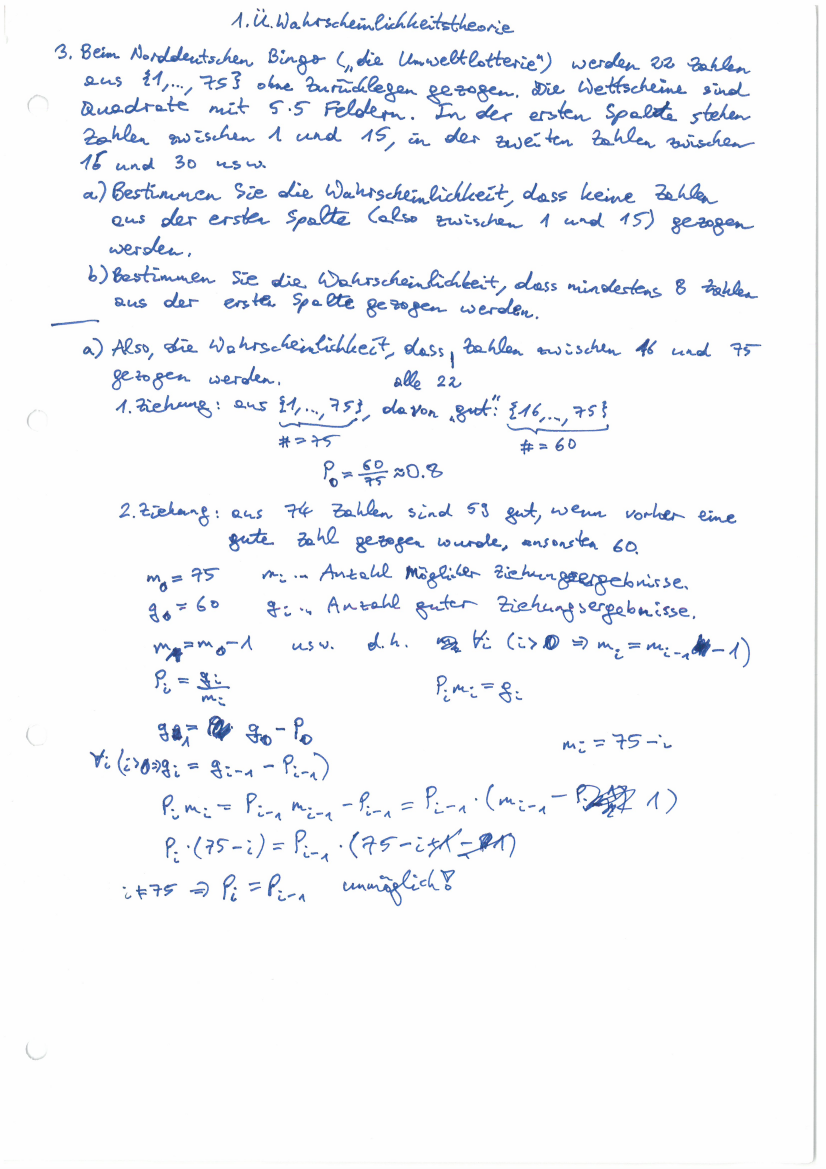 1. Ü. Wahrscheinlichkeitstheorie
3. Beim Norddeutschen Bingo („die Umweltlotterie“) werden 22 Zahlen
aus {1,..., 75} ohne Zurücklegen gezogen. Die Wettscheine sind
Quadrate mit 5·5 Feldern. In der ersten Spalte stehen
Zahlen zwischen 1 und 15, in der zweiten Zahlen zwischen
16 und 30 usw.
a) Bestimmen Sie die Wahrscheinlichkeit, dass keine Zahlen
aus der ersten Spalte (also zwischen 1 und 15) gezogen
werden.
b) Bestimmen Sie die Wahrscheinlichkeit, dass mindestens 8 Zahlen
aus der ersten Spalte gezogen werden.
a) Also, die Wahrscheinlichkeit, dass Zahlen zwischen 16 und 75
gezogen werden. alle 22
1. Ziehung: aus {1,..., 75}, davon „gut“: {16,..., 75}
#=75 #=60
P₀ = 60/75 ≈ 0.8
2. Ziehung: aus 74 Zahlen sind 59 gut, wenn vorher eine
gute Zahl gezogen wurde, ansonsten 60.
m₀ = 75 mᵢ ... Anzahl möglicher Ziehungsergebnisse.
g₀ = 60 gᵢ ... Anzahl guter Ziehungsergebnisse.
m₁ = m₀ - 1 usw. d.h. ∀i (i>0 ⇒ mᵢ = mᵢ₋₁ - 1)
Pᵢ = gᵢ/mᵢ Pᵢ mᵢ = gᵢ
g₁ = g₀ - P₀
mᵢ = 75 - i
∀i (i>0 ⇒ gᵢ = gᵢ₋₁ - Pᵢ₋₁)
Pᵢ mᵢ = Pᵢ₋₁ mᵢ₋₁ - Pᵢ₋₁ = Pᵢ₋₁ · (mᵢ₋₁ - 1)
Pᵢ · (75 - i) = Pᵢ₋₁ · (75 - i + 1 - 1)
i ≠ 75 ⇒ Pᵢ = Pᵢ₋₁ unmöglich!